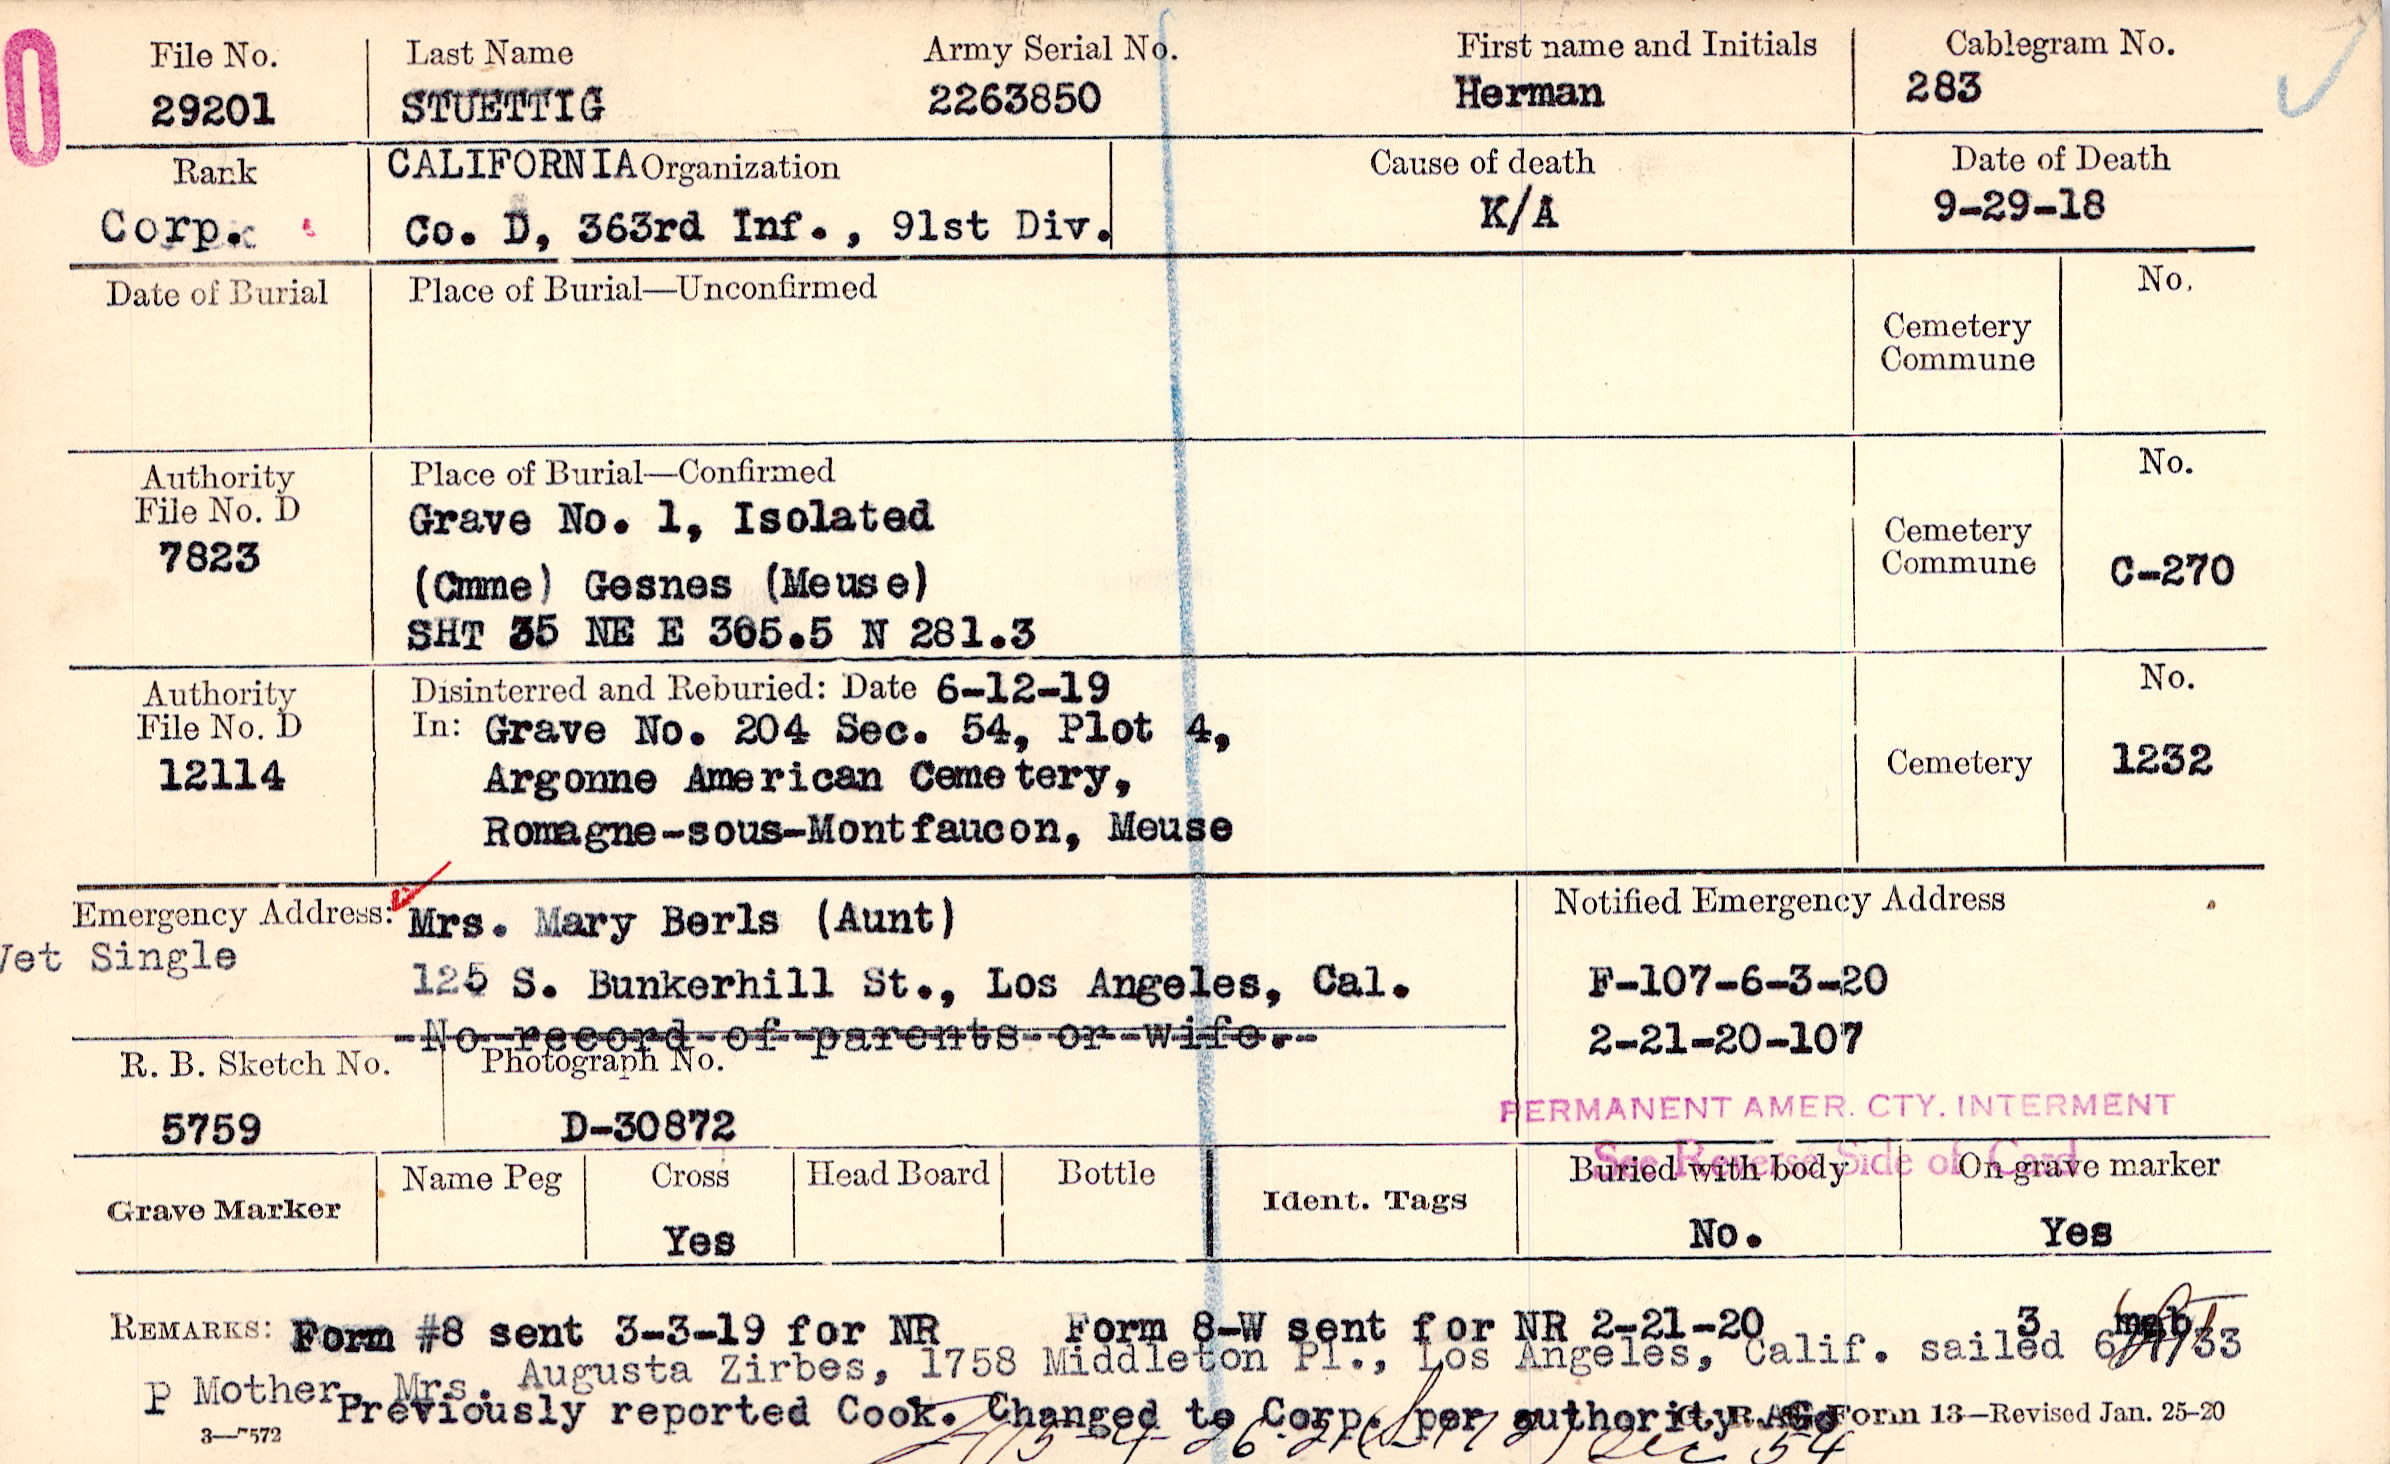 0
File No. Last Name Army Serial No. First name and Initials Cablegram No.
29201 STUETTIG 2263850 Herman 283
Rank CALIFORNIA Organization Cause of death Date of Death
Corp. Co. D, 363rd Inf., 91st Div. K/A 9-29-18
Date of Burial Place of Burial—Unconfirmed No.
Cemetery
Commune
Authority Place of Burial—Confirmed No.
File No. D Grave No. 1, Isolated Cemetery
7823 (Cmme) Gesnes (Meuse) Commune C-270
SHT 35 NE E 305.5 N 281.3
Authority Disinterred and Reburied: Date 6-12-19 No.
File No. D In: Grave No. 204 Sec. 54, Plot 4,
12114 Argonne American Cemetery, Cemetery 1232
Romagne-sous-Montfaucon, Meuse
Emergency Address: Mrs. Mary Berls (Aunt) Notified Emergency Address
Vet Single 125 S. Bunkerhill St., Los Angeles, Cal. F-107-6-3-20
-No record of parents or wife.-- 2-21-20-107
R. B. Sketch No. Photograph No.
5759 D-30872
PERMANENT AMER. CTY. INTERMENT
See Reverse Side of Card
Grave Marker Name Peg Cross Head Board Bottle Ident. Tags Buried with body On grave marker
Yes No. Yes
REMARKS: Form #8 sent 3-3-19 for NR Form 8-W sent for NR 2-21-20 3 meb
P Mother, Mrs. Augusta Zirbes, 1758 Middleton Pl., Los Angeles, Calif. sailed
Previously reported Cook. Changed to Corp. per authority AGO
G. R. S. Form 13—Revised Jan. 25-20
3—7572
54